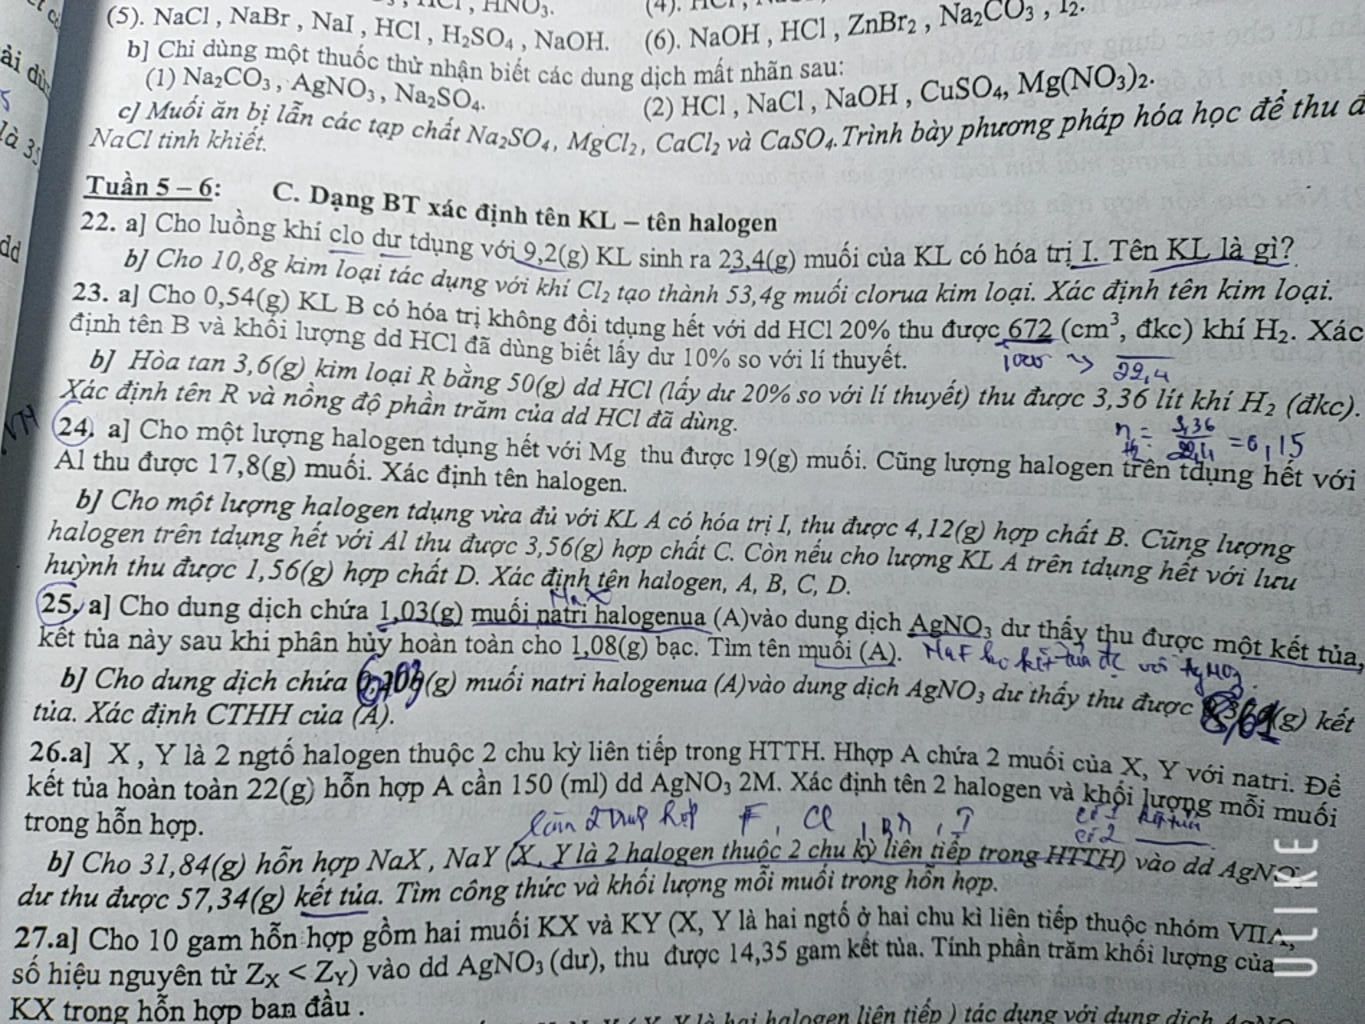 (5). NaCl , NaBr , NaI , HCl , H₂SO₄ , NaOH. (6). NaOH , HCl , ZnBr₂ , Na₂CO₃ , I₂.
b] Chỉ dùng một thuốc thử nhận biết các dung dịch mất nhãn sau:
(1) Na₂CO₃ , AgNO₃ , Na₂SO₄. (2) HCl , NaCl , NaOH , CuSO₄, Mg(NO₃)₂.
c] Muối ăn bị lẫn các tạp chất Na₂SO₄, MgCl₂, CaCl₂ và CaSO₄.Trình bày phương pháp hóa học để thu
NaCl tinh khiết.
Tuần 5 – 6: C. Dạng BT xác định tên KL – tên halogen
22. a] Cho luồng khí clo dư tdụng với 9,2(g) KL sinh ra 23,4(g) muối của KL có hóa trị I. Tên KL là gì?
b] Cho 10,8g kim loại tác dụng với khí Cl₂ tạo thành 53,4g muối clorua kim loại. Xác định tên kim loại.
23. a] Cho 0,54(g) KL B có hóa trị không đổi tdụng hết với dd HCl 20% thu được 672 (cm³, đkc) khí H₂. Xác
định tên B và khối lượng dd HCl đã dùng biết lấy dư 10% so với lí thuyết.
1000 → 22,4
b] Hòa tan 3,6(g) kim loại R bằng 50(g) dd HCl (lấy dư 20% so với lí thuyết) thu được 3,36 lít khí H₂ (đkc).
Xác định tên R và nồng độ phần trăm của dd HCl đã dùng.
n H₂ = 3,36 / 22,4 = 0,15
24. a] Cho một lượng halogen tdụng hết với Mg thu được 19(g) muối. Cũng lượng halogen trên tdụng hết với
Al thu được 17,8(g) muối. Xác định tên halogen.
b] Cho một lượng halogen tdụng vừa đủ với KL A có hóa trị I, thu được 4,12(g) hợp chất B. Cũng lượng
halogen trên tdụng hết với Al thu được 3,56(g) hợp chất C. Còn nếu cho lượng KL A trên tdụng hết với lưu
huỳnh thu được 1,56(g) hợp chất D. Xác định tên halogen, A, B, C, D.
NaX
25. a] Cho dung dịch chứa 1,03(g) muối natri halogenua (A)vào dung dịch AgNO₃ dư thấy thu được một kết tủa,
kết tủa này sau khi phân hủy hoàn toàn cho 1,08(g) bạc. Tìm tên muối (A).
NaF ko kết tủa đc với AgNO₃
b] Cho dung dịch chứa (g) muối natri halogenua (A)vào dung dịch AgNO₃ dư thấy thu được 8,61(g) kết
tủa. Xác định CTHH của (A).
26.a] X , Y là 2 ngtố halogen thuộc 2 chu kỳ liên tiếp trong HTTH. Hhợp A chứa 2 muối của X, Y với natri. Để
kết tủa hoàn toàn 22(g) hỗn hợp A cần 150 (ml) dd AgNO₃ 2M. Xác định tên 2 halogen và khối lượng mỗi muối
trong hỗn hợp.
làm 2 trường hợp F , Cl , Br , I có 1 kết tủa
có 2
b] Cho 31,84(g) hỗn hợp NaX , NaY (X , Y là 2 halogen thuộc 2 chu kỳ liên tiếp trong HTTH) vào dd AgNO₃
dư thu được 57,34(g) kết tủa. Tìm công thức và khối lượng mỗi muối trong hỗn hợp.
27.a] Cho 10 gam hỗn hợp gồm hai muối KX và KY (X, Y là hai ngtố ở hai chu kì liên tiếp thuộc nhóm VIIA,
số hiệu nguyên tử Zx < Zʏ) vào dd AgNO₃ (dư), thu được 14,35 gam kết tủa. Tính phần trăm khối lượng của
KX trong hỗn hợp ban đầu .
Y là hai halogen liên tiếp ) tác dụng với dung dịch
ULIKE